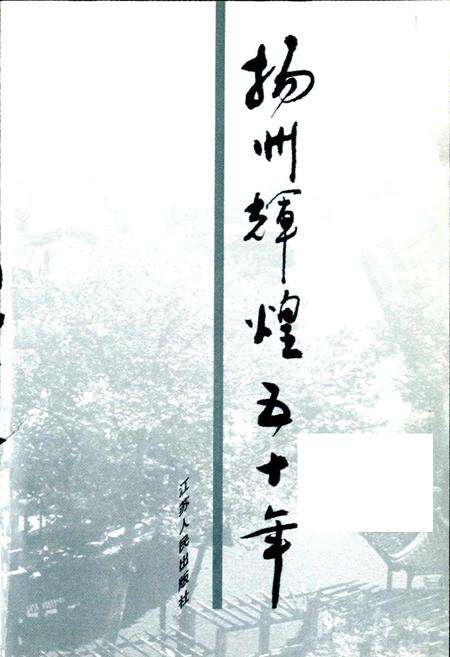 扬州辉煌五十年
江苏人民出版社